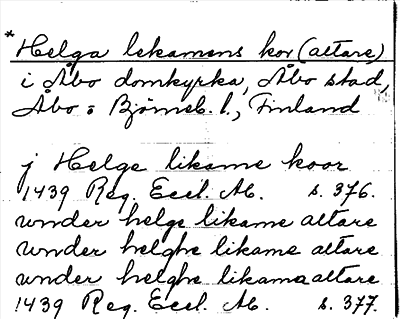 *Helga lekamens kor (altare)
i Åbo domkyrka, Åbo stad,
Åbo o Björneb. l., Finland
j Helge likame koor
1439 Reg. Eccl. Ab. s. 376.
wnder helge likame altare
wnder helghe likame altare
wnder helghe likama altare
1439 Reg. Eccl. Ab. s. 377.